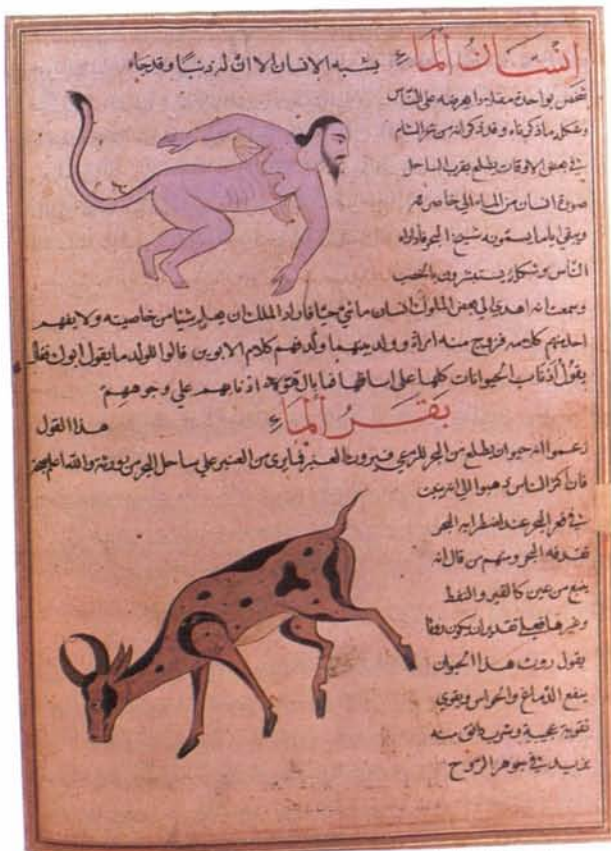 إنسان الماء يشبه الإنسان إلا أن له ذنبا وقد جاء
شخص بواحد مقدد يعرضه على الناس
وشكله ما ذكرناه وقد ذكر أنه من بحر الشام
في بعض الأوقات يطلع بقرب الساحل
صورة إنسان من الماء إلى خاصرته
ويبقى أياما يسمونه شيخ البحر فإذا رآه
الناس وشكله يستبشرون بالخصب
وسمعت أنه أهدي إلى بعض الملوك إنسان مائي حيا فأراد الملك أن يعلم شيئا من خاصيته ولا يفهم
أحد منهم كلامه فزوج منه امرأة وولد بينهما ولد فهم كلام الأبوين قالوا للولد ما يقول أبوك فقال
يقول أذناب الحيوانات كلها على أسافلها فما بال هؤلاء أذنابهم على وجوههم
بقر الماء هذا القول
زعموا أنه حيوان يطلع من البحر للرعي فيروث العنبر فما يرى من العنبر على ساحل البحر من روثه والله أعلم بصحة
فإن أكثر الناس ذهبوا إلى أنه ينبت
في قعر البحر عند اضطرابه البحر
تقذفه البحر ومنهم من قال أنه
ينبع من عين كالقير والنفط
وغيرها فعلى تقدير أن يكون روثا
يقول روث هذا الحيوان
ينفع الدماغ والحواس ويقوي
تقوية عجيبة وشرب دانق منه
يزيد في جوهر الروح